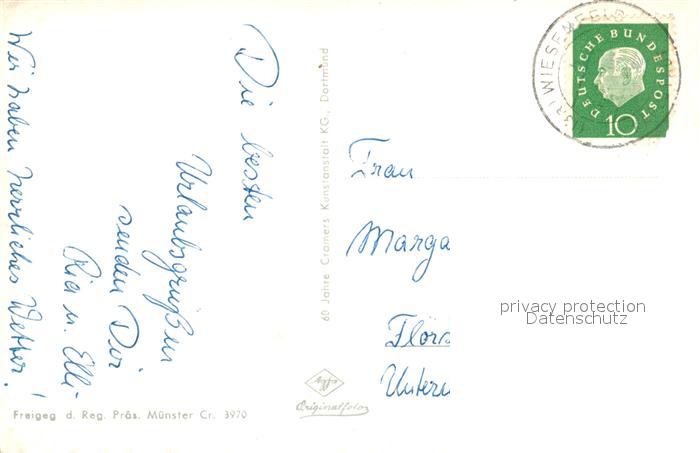 Die besten
Urlaubsgrüße
senden Dir
Ria u. Elli
Wir haben herrliches Wetter!
Freigeg d. Reg. Präs. Münster Cr. 3970
60 Jahre Cramers Kunstanstalt KG., Dortmund
Agfa
Originalfotos
WIESENFELD
DEUTSCHE BUNDESPOST
10
Frau
Marga
Flörs
Untern
privacy protection
Datenschutz